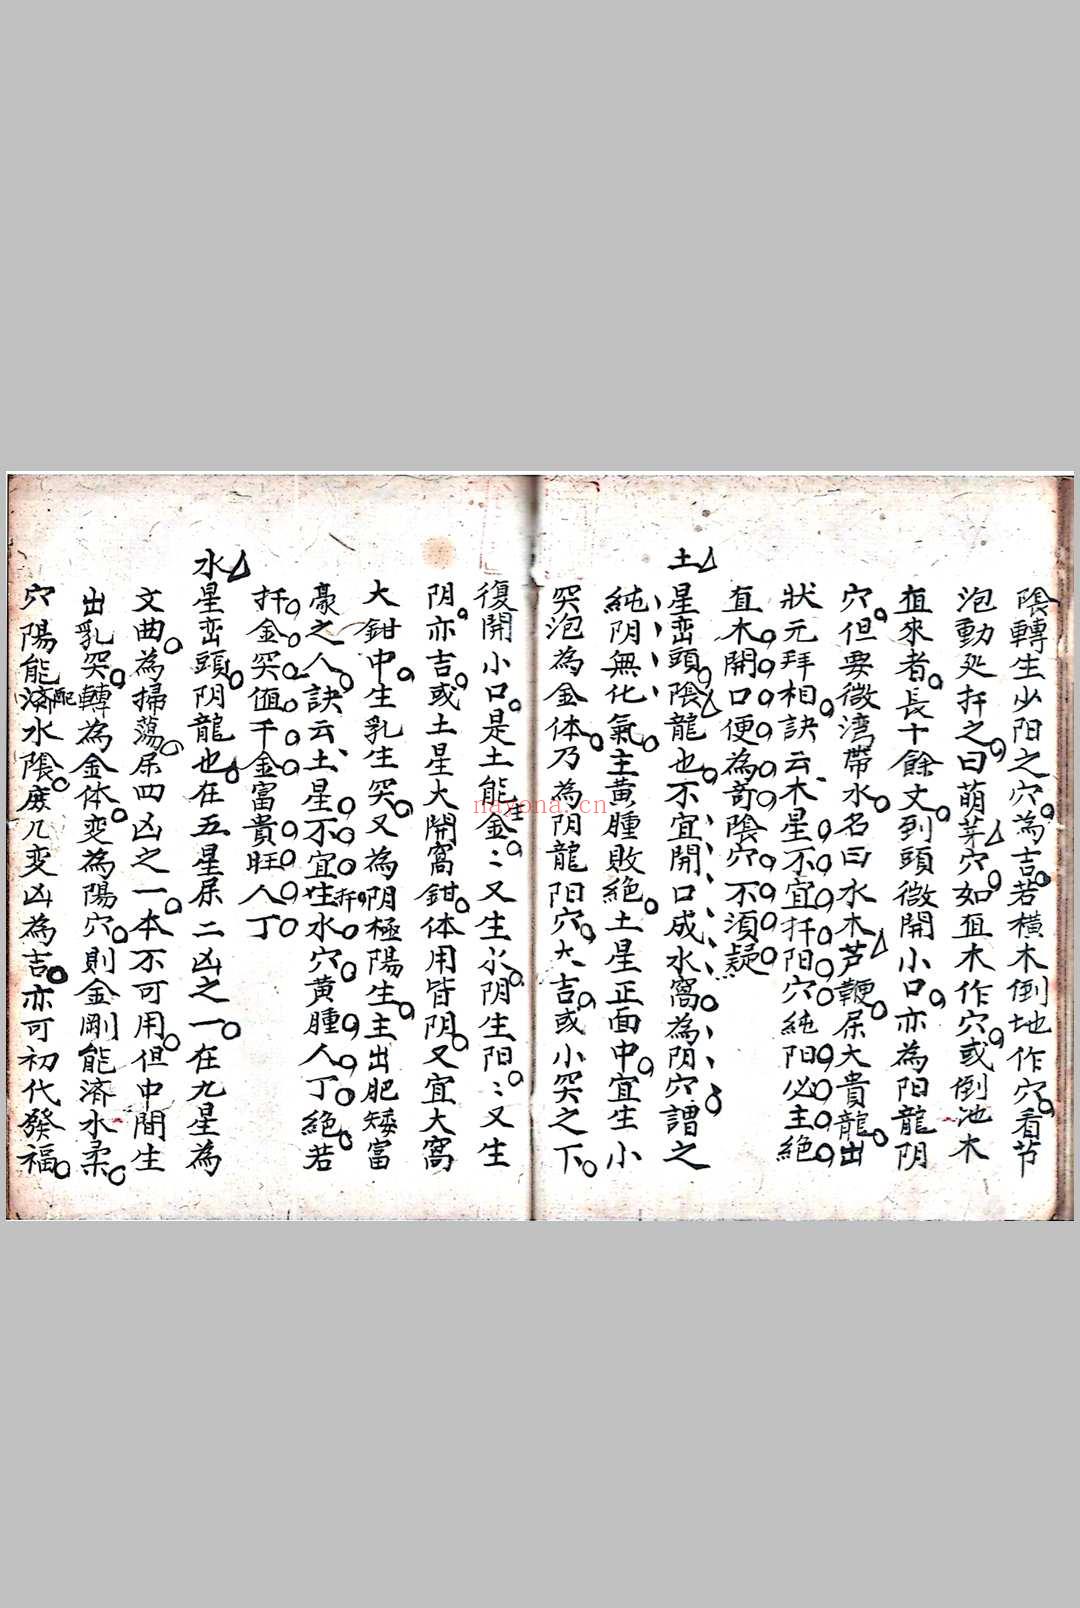 陰轉生少阳之穴為吉若橫木倒地作穴看节
泡動处扦之曰萌芽穴如直木作穴或倒地木
直來者長十餘丈到頭微開小口亦為阳龍阴
穴但要微湾帶水名曰水木芦鞭屈大貴龍出
狀元拜相訣云木星不宜扦阳穴純阳必主絕
直木開口便為奇陰穴不須疑
土星峦頭陰龍也不宜開口成水窩為阴穴謂之
純阴無化氣主黃腫敗絕土星正面中宜生小
突泡為金体乃為阴龍阳穴大吉或小突之下
復開小口是土能生金:又生水阴生阳:又生
阴亦吉或土星大開窩鉗体用皆阴又宜大窩
大鉗中生乳生突又為阴極陽生主出肥矮富
豪之人訣云土星不宜扦水穴黄腫人丁絕若
扦金突值千金富貴旺人丁
水星峦頭阴龍也在五星屈二凶之一在九星為
文曲為掃蕩屈四凶之一本不可用但中間生
出乳突轉為金体变為陽穴則金剛能济水柔
穴陽能济配水陰庶几变凶為吉亦可初代發福
nayona.cn